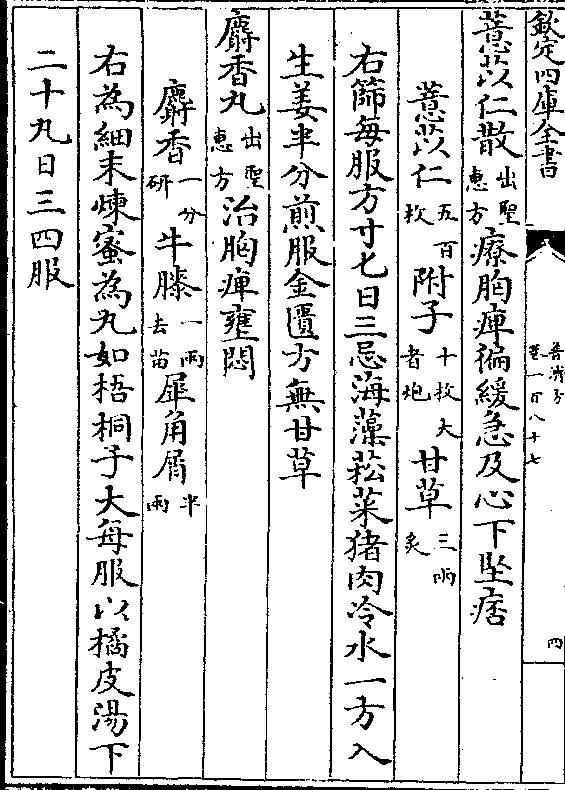 欽定四庫全書
普濟方
卷一百八十七
四
薏苡仁散出聖惠方療胸痺徧緩急及心下堅痞
薏苡仁五百枚附子十枚大者炮甘草三兩炙
右篩每服方寸七日三忌海藻菘菜猪肉冷水一方入
生姜半分煎服金匱方無甘草
麝香丸出聖惠方治胸痺壅悶
麝香一分研牛膝一兩去苗犀角屑半兩
右為細末煉蜜為丸如梧桐子大每服以橘皮湯下
二十丸日三四服